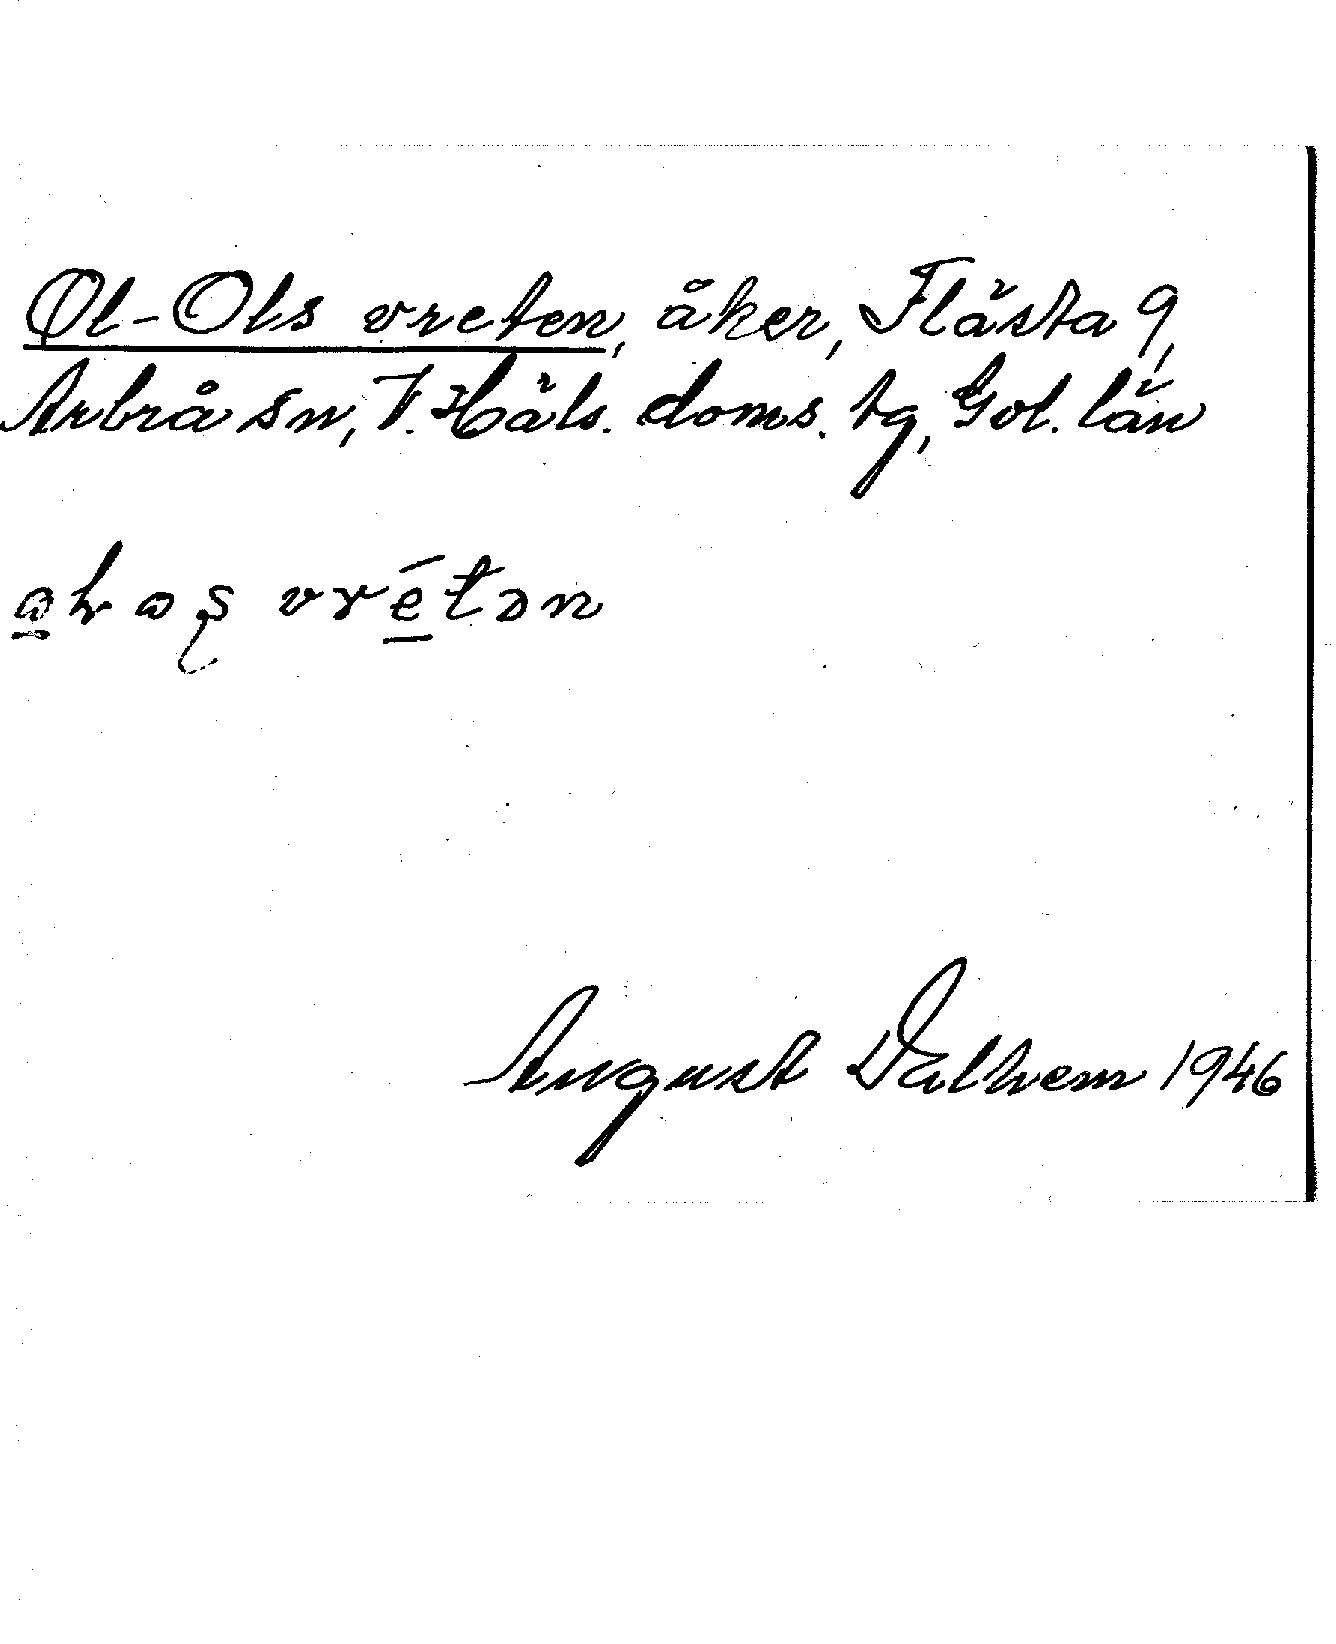 Ol-Ols vreten, åker, Flästa 9,
Arbrå sn, V. Häls. doms. tg, Gvl. län
vrétən
August Dalhem 1946